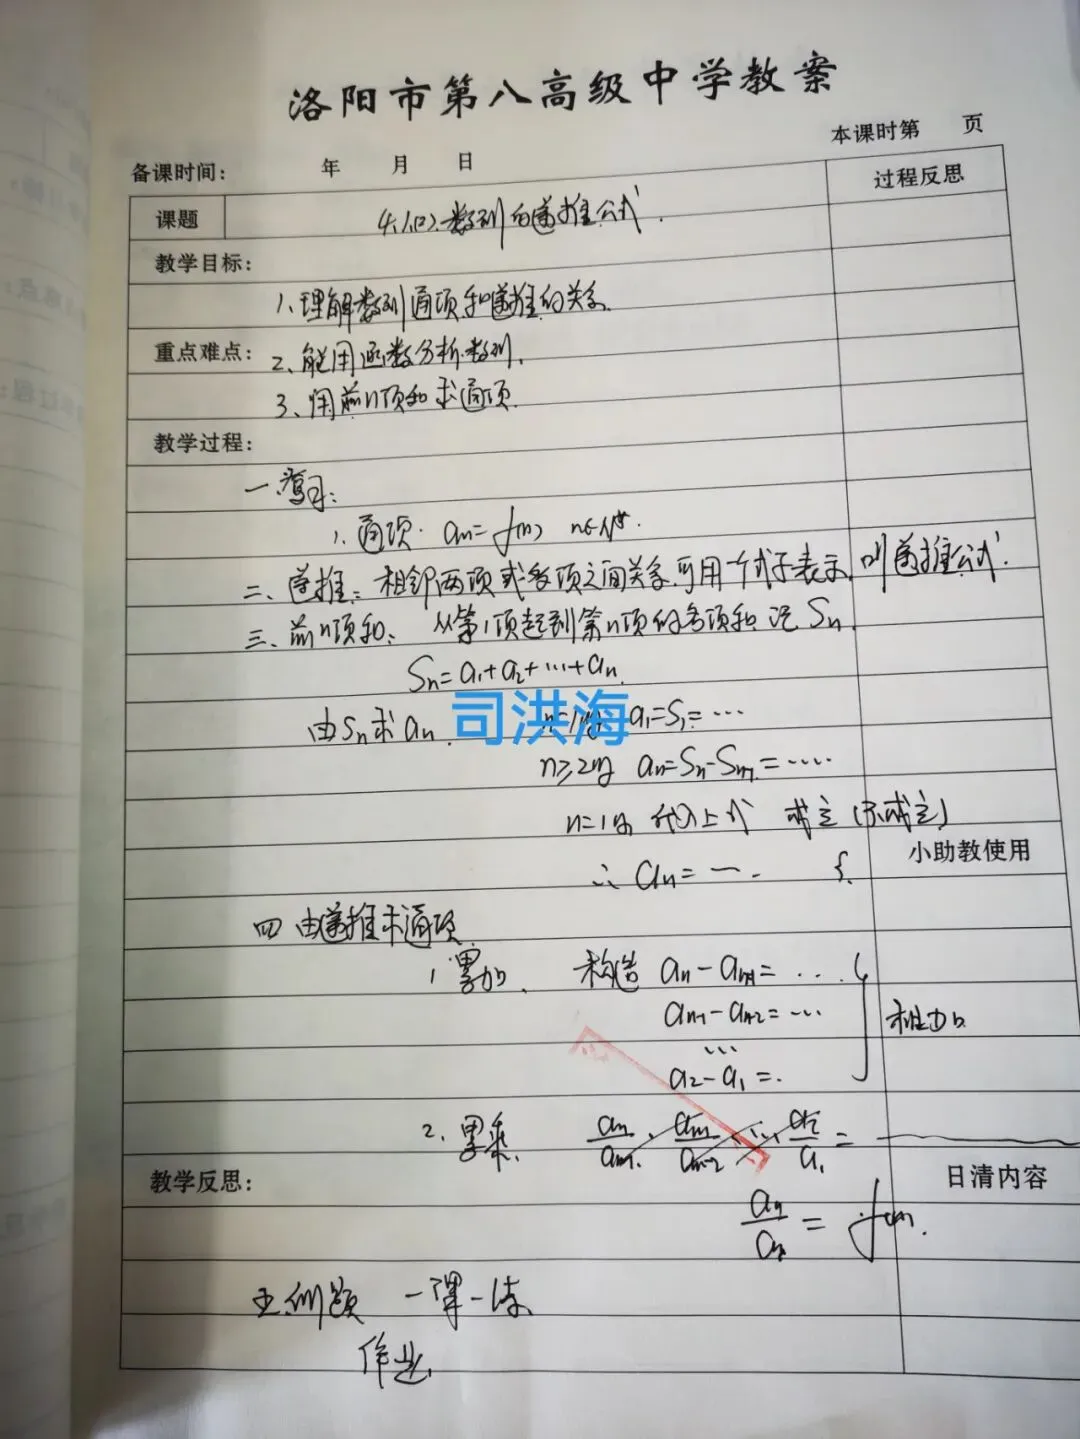 洛阳市第八高级中学教案
本课时第 页
备课时间： 年 月 日
过程反思
课题 4.1(2).数列的递推公式.
教学目标：
1、理解数列通项和递推的关系.
重点难点： 2、能用函数分析数列.
3、用前n项和求通项.
教学过程：
一.复习:
1. 通项. an=f(n) n∈N*.
二、递推: 相邻两项或多项之间关系.可用一个式子表示.叫递推公式.
三、前n项和: 从第1项起到第n项的各项和.记Sn.
Sn=a1+a2+…+an.
由Sn求an. n=1时 a1=S1=…
司洪海
n≥2时 an=Sn-Sn-1=….
n=1时 代入上式 成立(不成立)
小助教使用
∴ an=一. {.
四 由递推求通项.
1 累加. 构造 an-an-1=...
an-1-an-2=…
相加
…
a2-a1=.
2. 累乘. an/an-1 · an-1/an-2 · … a2/a1 =
教学反思：
日清内容
an/a1 = f(n).
五.例题 一课一练
作业.